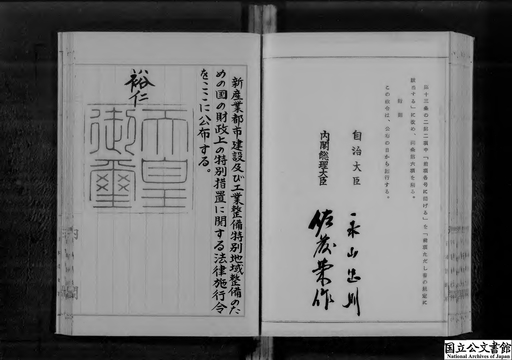 三十三条の二第二項中「前項各号に掲げる」を「前項ただし書の規定に
該当する」に改め、同条第六項を削る。
附則
この政令は、公布の日から施行する。
自治大臣
永山忠則
内閣総理大臣
佐藤栄作
新産業都市建設及び工業整備特別地域整備のた
めの国の財政上の特別措置に関する法律施行令
をここに公布する。
裕仁
天皇
御璽
国立公文書館
National Archives of Japan